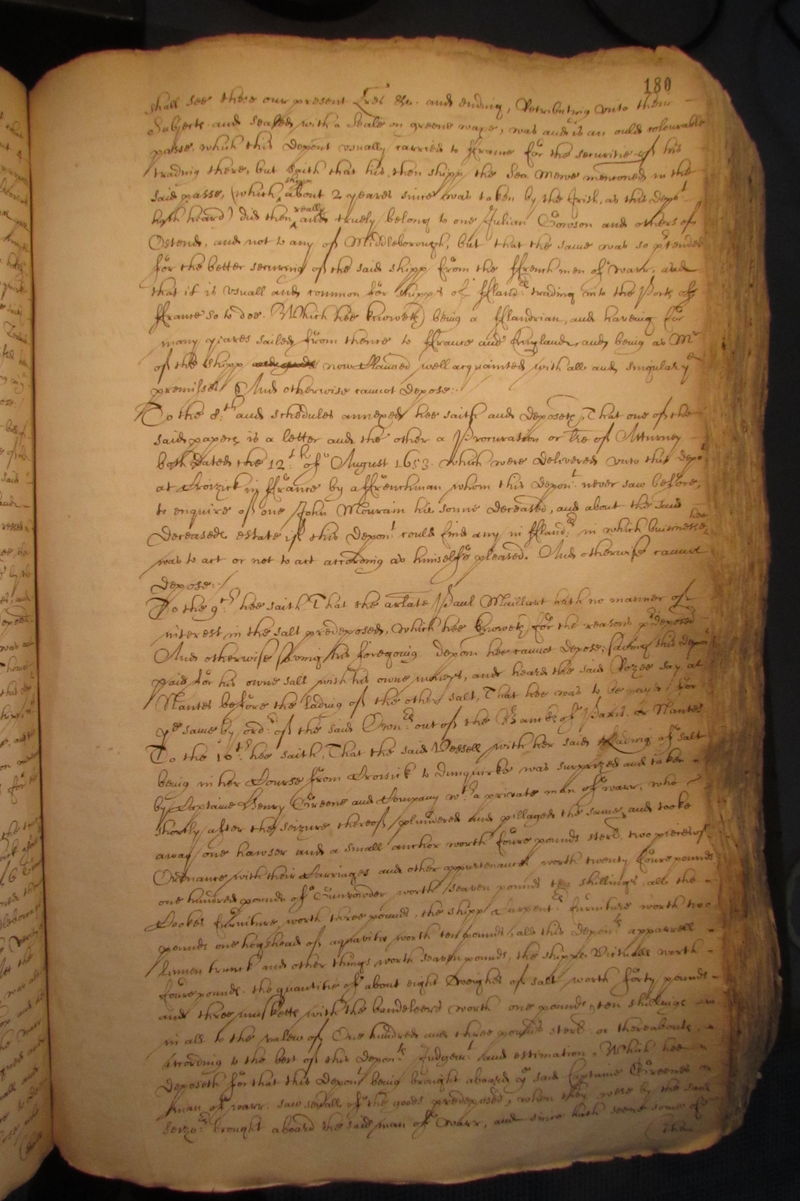 180
shall see these our present Lres &c. and ending, Retributing unto them
Subjects and sealed with a Seale on greene waxe, was and is an ould colourable
passe, which this Depont usually carried to ffrance for the securitie of his
trading there, but saith that his then shipp the Sea Mewe mentioned in the
said passe, (which shipp about 2 yeares since was taken by the Irish, as this depot
hath heard) did then really and truely belong to one Julian Cowson and others of
Ostend, and not to any of Middleborough, but that the same was so ptended
for the better securing of the said shipp from the ffrench men of warr, and
that it is usuall and common for shipps of ffland:rs trading into the Ports of
ffrance so to doe. Which hee knoweth being a fflandrian, and haveing for
many yeares sailed from thence to ffrance and England, and being as Mr
of the shipp now Claimed well acquainted with all and singular ye
premisses. And otherwise cannot depose:-/
To the 8:th and schedules annexed hee saith and deposeth, That one of the
said papers is a letter and the other a Procuration or lre of Atturney
both dated the 12:th of August 1653. which were delivered unto this depot
at Croizick in ffrance by a ffrenchman whom this Depont never saw before,
to enquire of one John Mourain his sonne deceased, and about the said
deceaseds estate if this Depont could find any in ffland:rs in which buisnesse hee
was to act or not to act according as himselfe pleased. And otherwise cannot
depose:-/
To the 9:th hee saith That the arlate Paul Maillart hath no manner of
interest in the salt predeposed, Which hee knoweth for the reasons pdeposed
And otherwise saving his foregoing deposn hee cannot depose, saving this depot
paid for his owne salt with his owne moneys, and heard the said Rozee say at
Nantes before the lading of the other salt, That hee was to be payd for
ye same by ordr of the said Ownrs out of the Bancks of Paris or Nantes
To the 10:th hee saith, That the said Vessell with her said Lading of salt
being in her Course from Croisik to Dunquirke was surprized and taken
by Captaine Henry Greene and Company wth a private man of warr, who
shortly after the seizure thereof plundered and pillaged the same, and tooke
away one hawser and a small anchor worth foure pounds sterl. two pieces of
Ordnance with their Carriages and other appurtenances worth twenty foure pounds
one hundred pounds of Gunpowder worth seaven pounds ten shillings, all the
Cookes furniture worth three pounds, the shipp Carpentrs furniture worth two
pounds one hogshead of aquavitae worth ten pounds, all this Deponts apparrell
linnen trunck and other things worth seaven pounds, the shipps Victualls worth
foure pounds. the quantitie of about eight Weighes of salt worth forty pounds
and three musketts with the bandeleers worth one pound ten shillings
in all to the valew of One hundred and three pounds sterl. or thereabouts,
according to the best of this Deponts Judgemt and estimation. Which hee
deposeth for that this Depont being brought aboard ye said Captaine Greenes
man of warr. saw severall of the goods predeposed, when they were by the said
seizrs brought aboard the said man of warr, and since hath seene some of
the